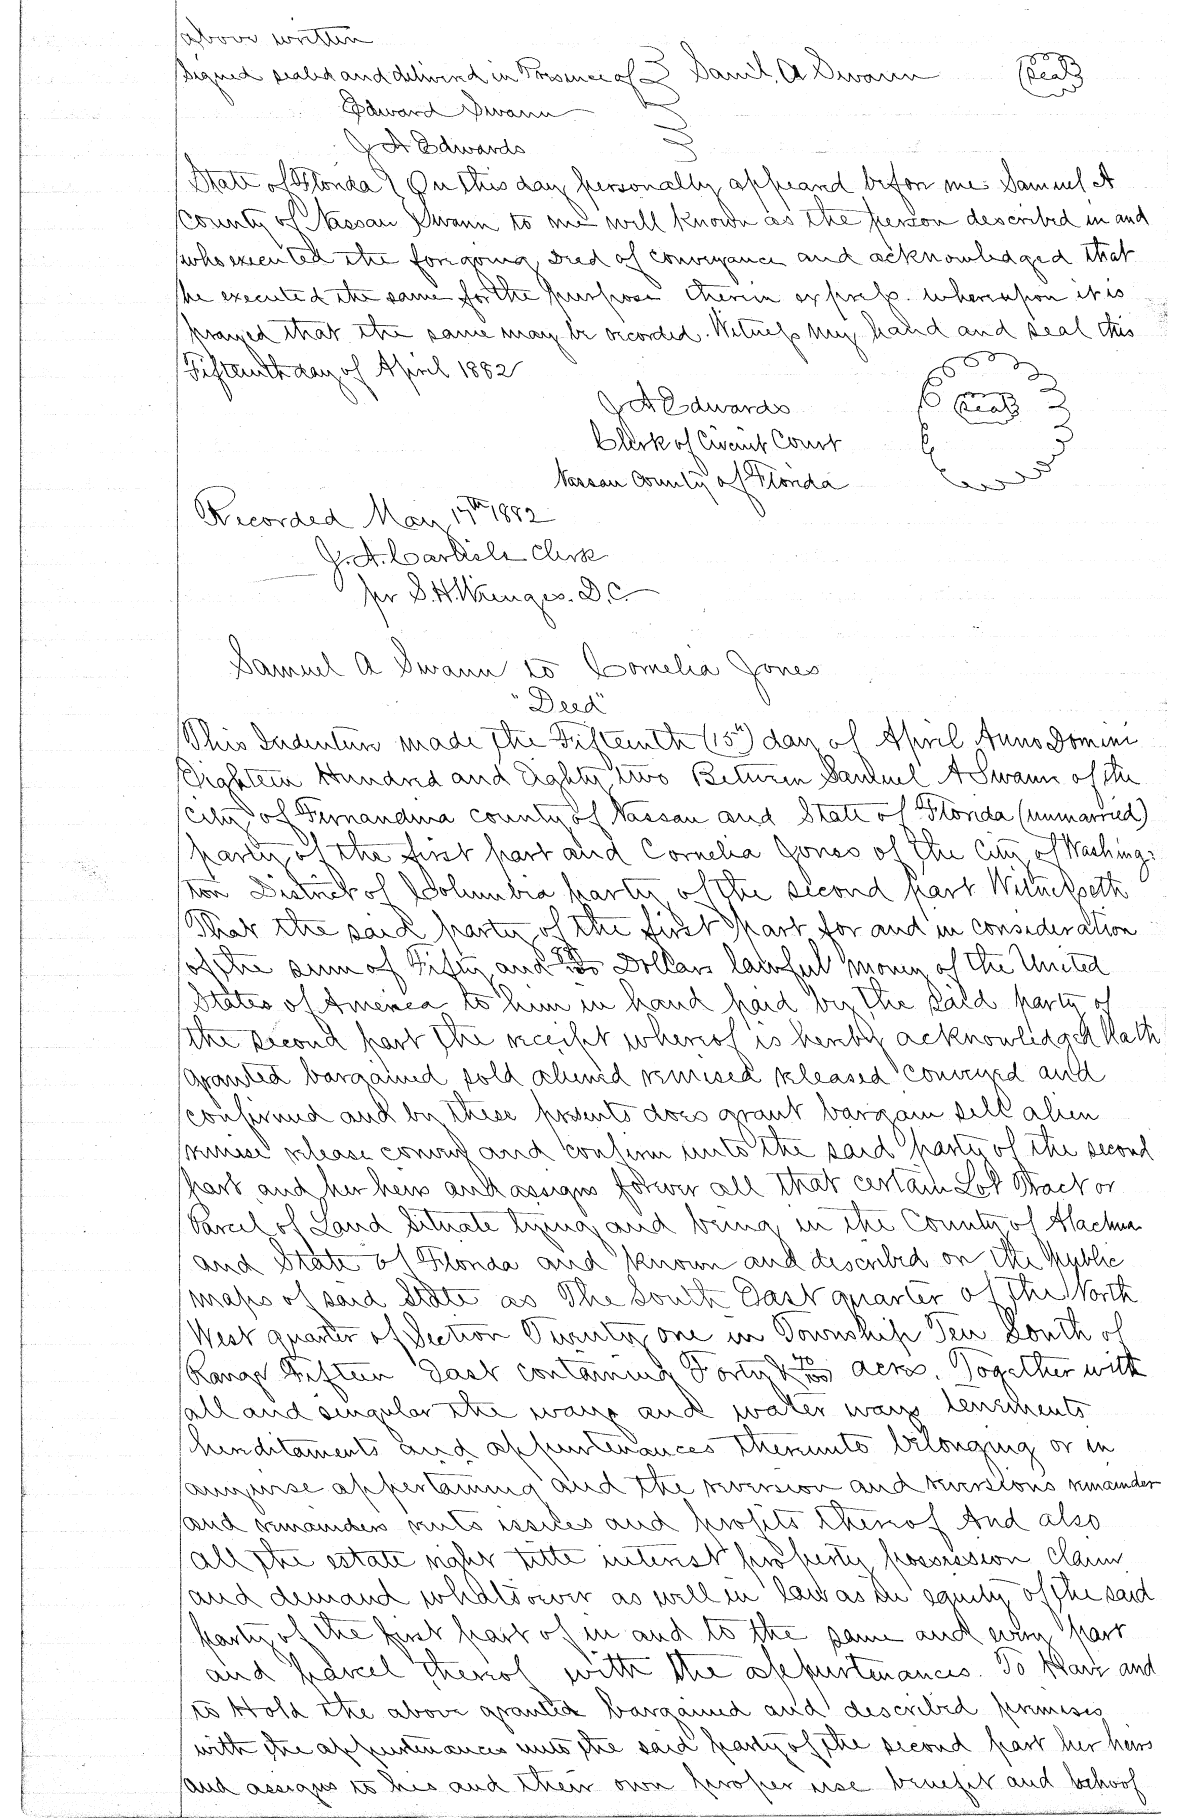 above written
Signed sealed and delivered in Presence of Saml. A Swann (Seal)
Edward Swann
J A Edwards
State of Florida } On this day personally appeard before me Samuel A
County of Nassau Swann to me well known as the person described in and
who executed the foregoing Deed of conveyance and acknowledged that
he executed the same for the purpose therein express. whereupon it is
prayed that the same may be recorded. Witness my hand and seal this
Fifteenth day of April 1882
J A Edwards (Seal)
Clerk of Circuit Court
Nassau County of Florida
Recorded May 17th 1882
J. A. Carlisle Clerk
per S. H. D.C.
Samuel A Swann to Cornelia Jones
"Deed"
This Indenture made the Fifteenth (15th) day of April Anno Domini
Eighteen Hundred and Eighty two Between Samuel A Swann of the
City of Fernandina county of Nassau and State of Florida (unmarried)
party of the first part and Cornelia Jones of the City of Washing-
ton District of Columbia party of the second part Witnesseth
That the said party of the first part for and in consideration
of the sum of Fifty and Dollars lawful money of the United
States of America to him in hand paid by the said party of
the second part the receipt whereof is hereby acknowledged hath
granted bargained sold aliened remised released conveyed and
confirmed and by these presents does grant bargain sell alien
remise release convey and confirm unto the said party of the second
part and her heirs and assigns forever all that certain Lot Tract or
Parcel of Land Situate lying and being in the County of Alachua
and State of Florida and known and described on the Public
maps of said State as The South East quarter of the North
West quarter of Section Twenty one in Township Ten South of
Range Fifteen East containing Forty & 70/100 acres. Together with
all and singular the ways and water ways tenements
hereditaments and appurtenances thereunto belonging or in
anywise appertaining and the reversion and reversions remainder
and remainders rents issues and profits thereof And also
all the estate right title interest property possession claim
and demand whatsoever as well in law as in equity of the said
party of the first part of in and to the same and every part
and parcel thereof with the appurtenances. To Have and
to Hold the above granted bargained and described premises
with the appurtenances unto the said party of the second part her heirs
and assigns to his and their own proper use benefit and behoof